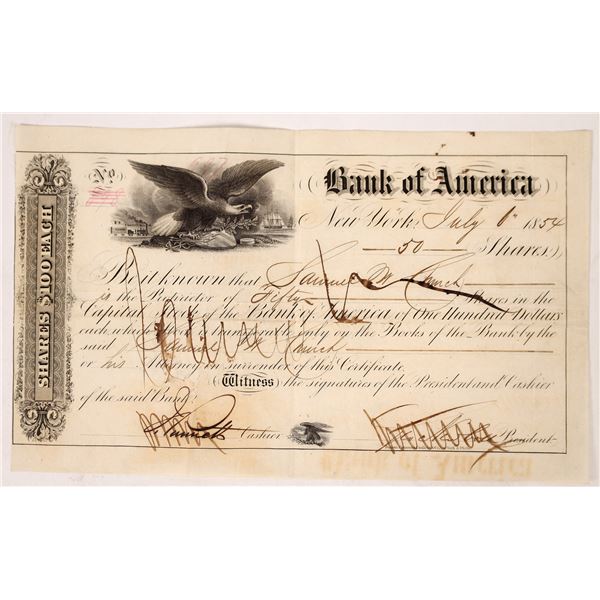 SHARES $100 EACH
No.
Bank of America
New York, July 6th 1854
50 Shares.
Be it known that Samuel M
is the Proprietor of Fifty Shares in the
Capital Stock of the Bank of America of One Hundred Dollars
each, which Stock is transferable only on the Books of the Bank by the
said Samuel M
or his Attorney on surrender of this Certificate.
Witness the Signatures of the President and Cashier
of the said Bank.
Cashier President
Bank of America